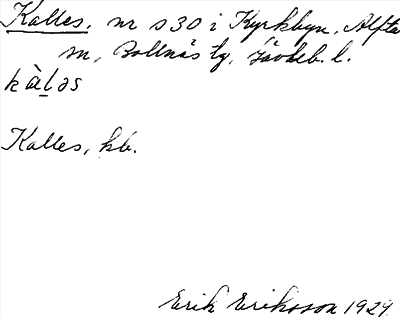 Kalles, nr s 30 i Kyrkbyn, Alfta
sn, Bollnäs tg, Gävleb. l.
kàḻəs
Kalles, kb.
Erik Eriksson 1929